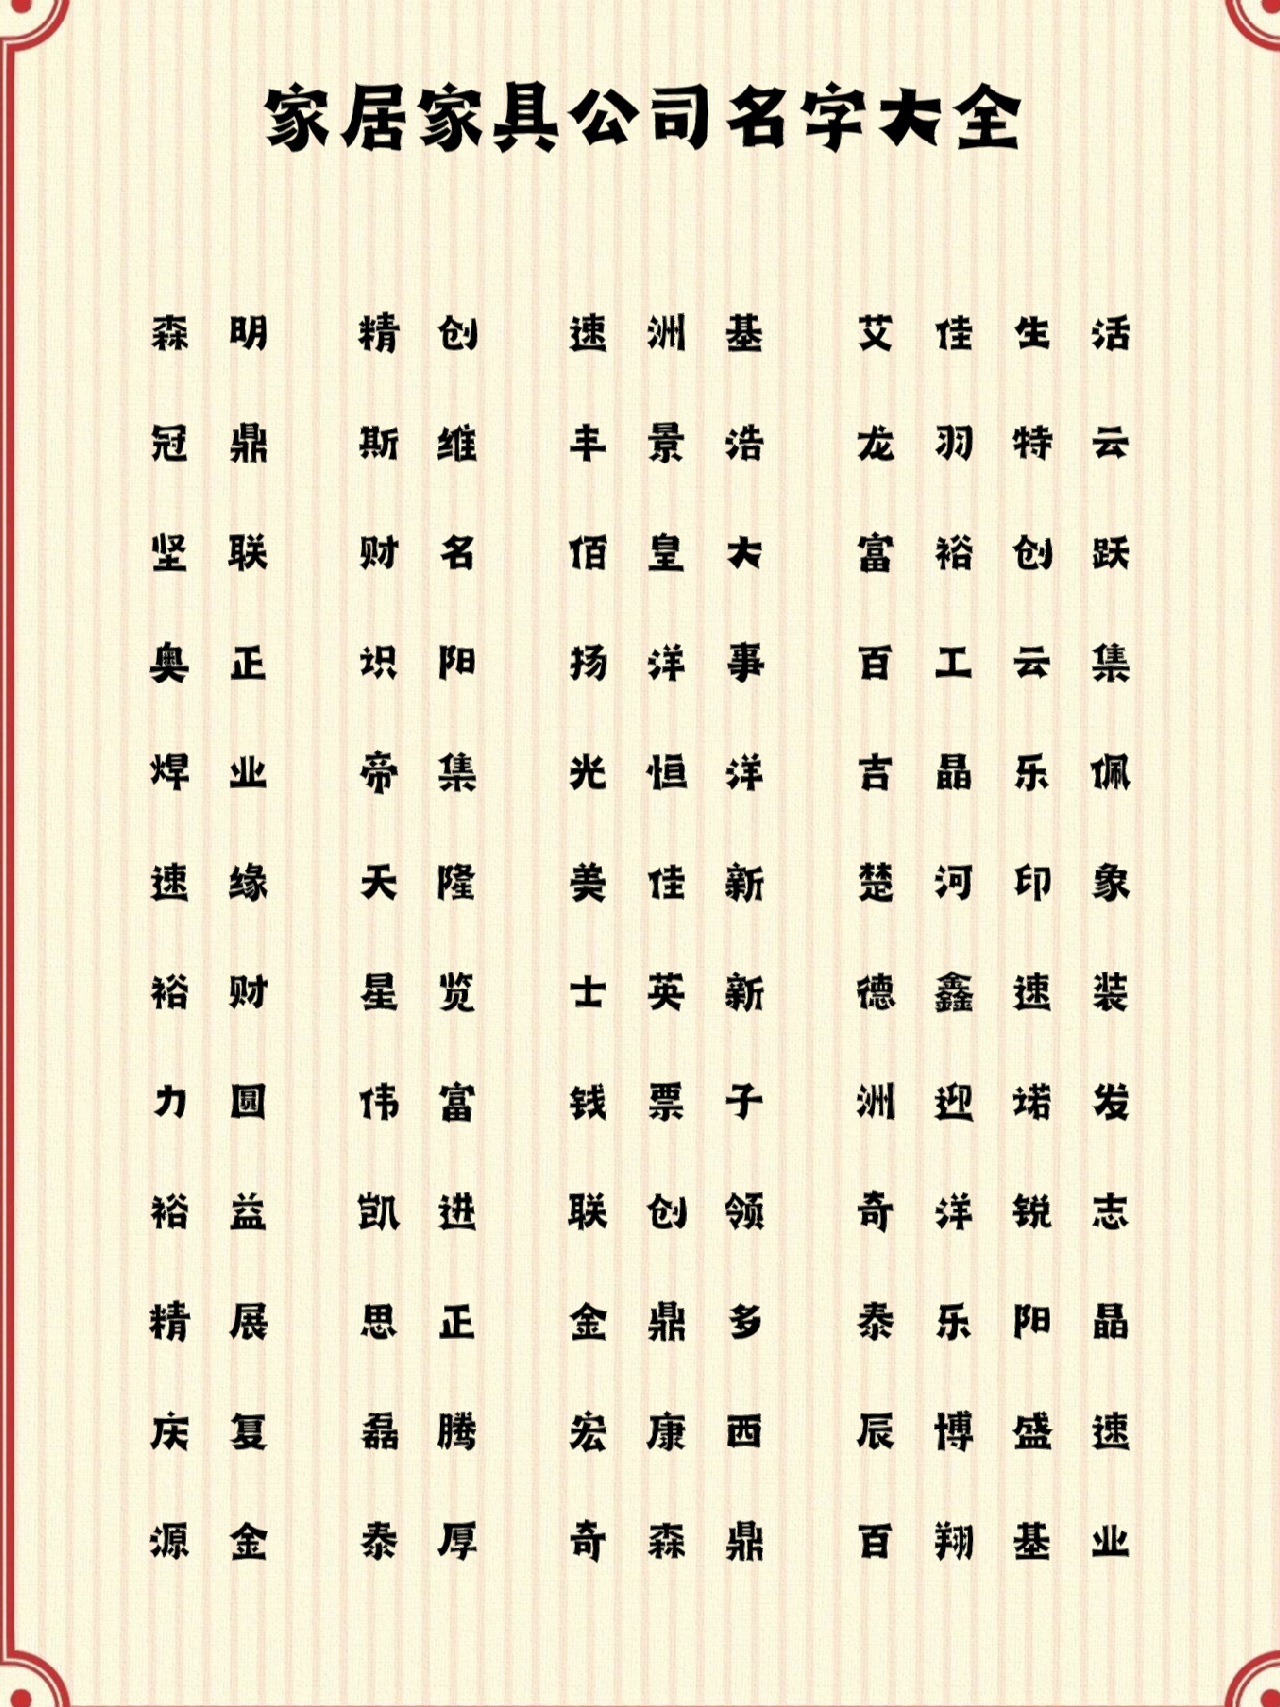 家居家具公司名字大全
森明 精创 速洲基 艾佳生活
冠鼎 斯维 丰景浩 龙羽特云
坚联 财名 佰皇大 富裕创跃
奥正 识阳 扬洋事 百工云集
焊业 帝集 光恒洋 吉晶乐佩
速缘 天隆 美佳新 楚河印象
裕财 星览 士英新 德鑫速装
力圆 伟富 钱票子 洲迎诺发
裕益 凯进 联创领 奇洋锐志
精展 思正 金鼎多 泰乐阳晶
庆复 磊腾 宏康西 辰博盛速
源金 泰厚 奇森鼎 百翔基业